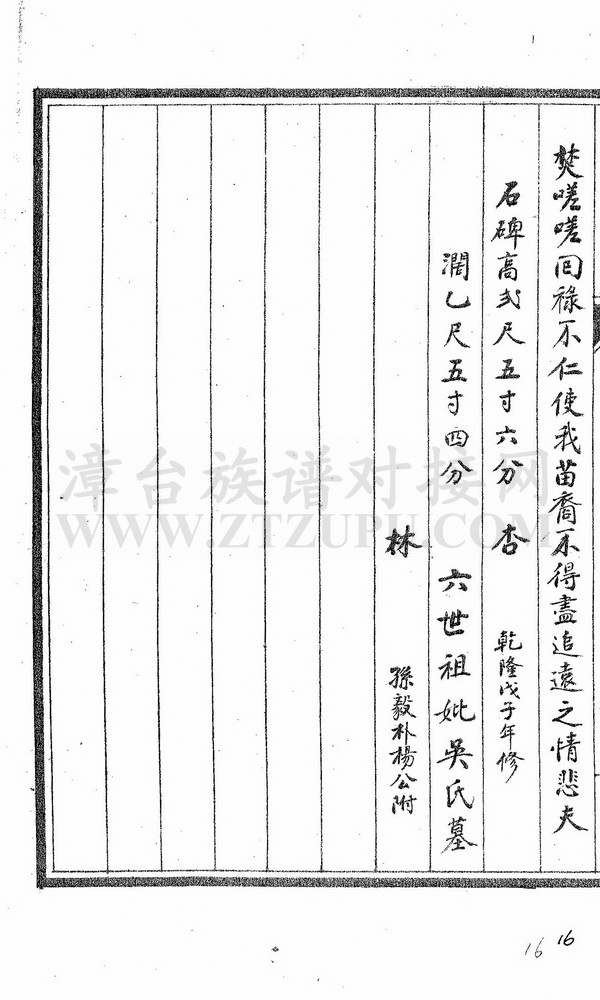 焚嗟嗟回祿不仁使我苗裔不得盡追遠之情悲夫
石碑高弍尺五寸六分 杏 乾隆戊子年修
濶乙尺五寸四分 六世祖妣吳氏墓
林 孫毅朴楊公附
漳台族谱对接网
WWW.ZTZUPU.COM
16 16